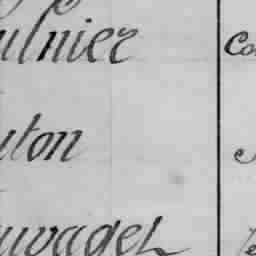 ulnier Co
uton
uvaget